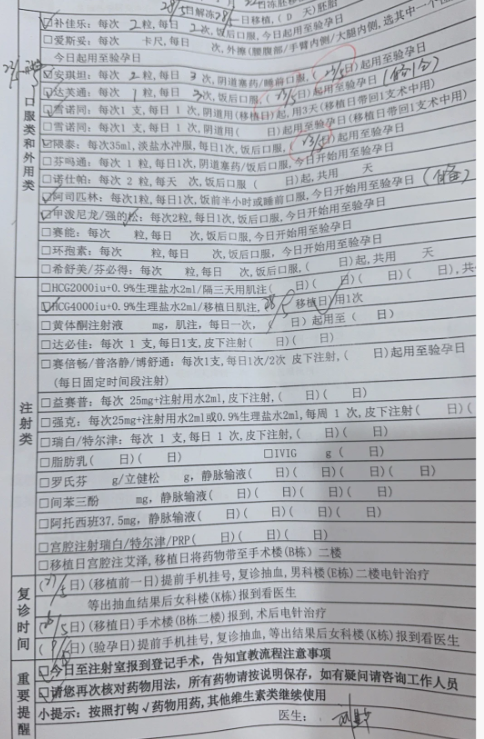 28/5解冻 28/5日移植,(D 天)胚胎
☑补佳乐:每次 2 粒,每日 2 次,饭后口服,今日起用至验孕日
□爱斯妥:每次 卡尺,每日 次,外擦(腰腹部/手臂内侧/大腿内侧,选其中一个
今日起用至验孕日
口服类和外用类
☑安琪坦:每次 2 粒,每日 3 次,阴道塞药/睡前口服,(23/5)起用至验孕日
☑达芙通:每次 1 粒,每日 3次,饭后口服,(23/5日)起用至验孕日
☑雪诺同:每次1 支,每日 1 次,阴道用(移植日)起,用3天(移植日带回1支术中用)
□雪诺同:每次1 支,每日 1 次,阴道用( 日)起用至验孕日(移植日带回1支术中用)
☑隈泰:每次35ml,淡盐水冲服,每日1次,饭后口服,(23/5日)起用至验孕日
□芬吗通:每次 1 粒,每日1次,阴道塞药/饭后口服,今日开始用至验孕日
□诺仕帕:每次 2 粒,每天 次,饭后口服( 日)起,共用 天
☑阿司匹林:每次1粒,每日1次,饭前半小时或睡前口服,今日开始用至验孕日
☑甲泼尼龙/强的松:每次2粒,每日1次,饭后口服,今日开始用至验孕日
□赛能:每次 粒,每日 次,饭后口服,今日开始用至验孕日
□环孢素:每次 粒,每日 次,饭后口服,今日开始用至验孕日
□希舒美/芬必得:每次 粒,每日 次,饭后口服,( 日)起,共用 天
注射类
□HCG2000iu+0.9%生理盐水2ml/隔三天用肌注( 日)( 日)( 日)( 日),共
☑HCG4000iu+0.9%生理盐水2ml/移植日肌注,28/5 移植日用1次
□黄体酮注射液 mg,肌注,每日一次,( 日)起用至( 日)
□达必佳:每次 1 支,每日1支,皮下注射( 日)( 日)
□赛倍畅/普洛静/博舒通:每次1支,每日1次/2次 皮下注射,( 日)起用至验孕日
(每日固定时间段注射)
□益赛普:每次 25mg+注射用水2ml,皮下注射,( 日)( 日)
□强克:每次25mg+注射用水2ml或0.9%生理盐水2ml,每周 1 次,皮下注射( 日)(
□瑞白/特尔津:每次 1 支,每日 1 次,皮下注射,( 日)( 日)
□脂肪乳( 日)( 日) □IVIG g( 日)
□罗氏芬 g/立健松 g,静脉输液( 日)( 日)( 日)( 日)
□间苯三酚 mg,静脉输液( 日)( 日)( 日)( 日)
□阿托西班37.5mg,静脉输液( 日)( 日)( 日)
□宫腔注射瑞白/特尔津/PRP( 日)( 日)
□移植日宫腔注艾泽,移植日将药物带至手术楼(B栋)二楼
复诊时间
(27/5日)(移植前一日)提前手机挂号,复诊抽血,男科楼(E栋)二楼电针治疗
等出抽血结果后女科楼(K栋)报到看医生
(28/5日)(移植日)手术楼(B栋二楼)报到,术后电针治疗
日)(验孕日)提前手机挂号,复诊抽血,等出结果后女科楼(K栋)报到看医生
重要提醒
☑今日至注射室报到登记手术,告知宣教流程注意事项
☑请您再次核对药物用法,所有药物请按说明保存,如有疑问请咨询工作人员
小提示:按照打钩√药物用药,其他维生素类继续使用
医生: